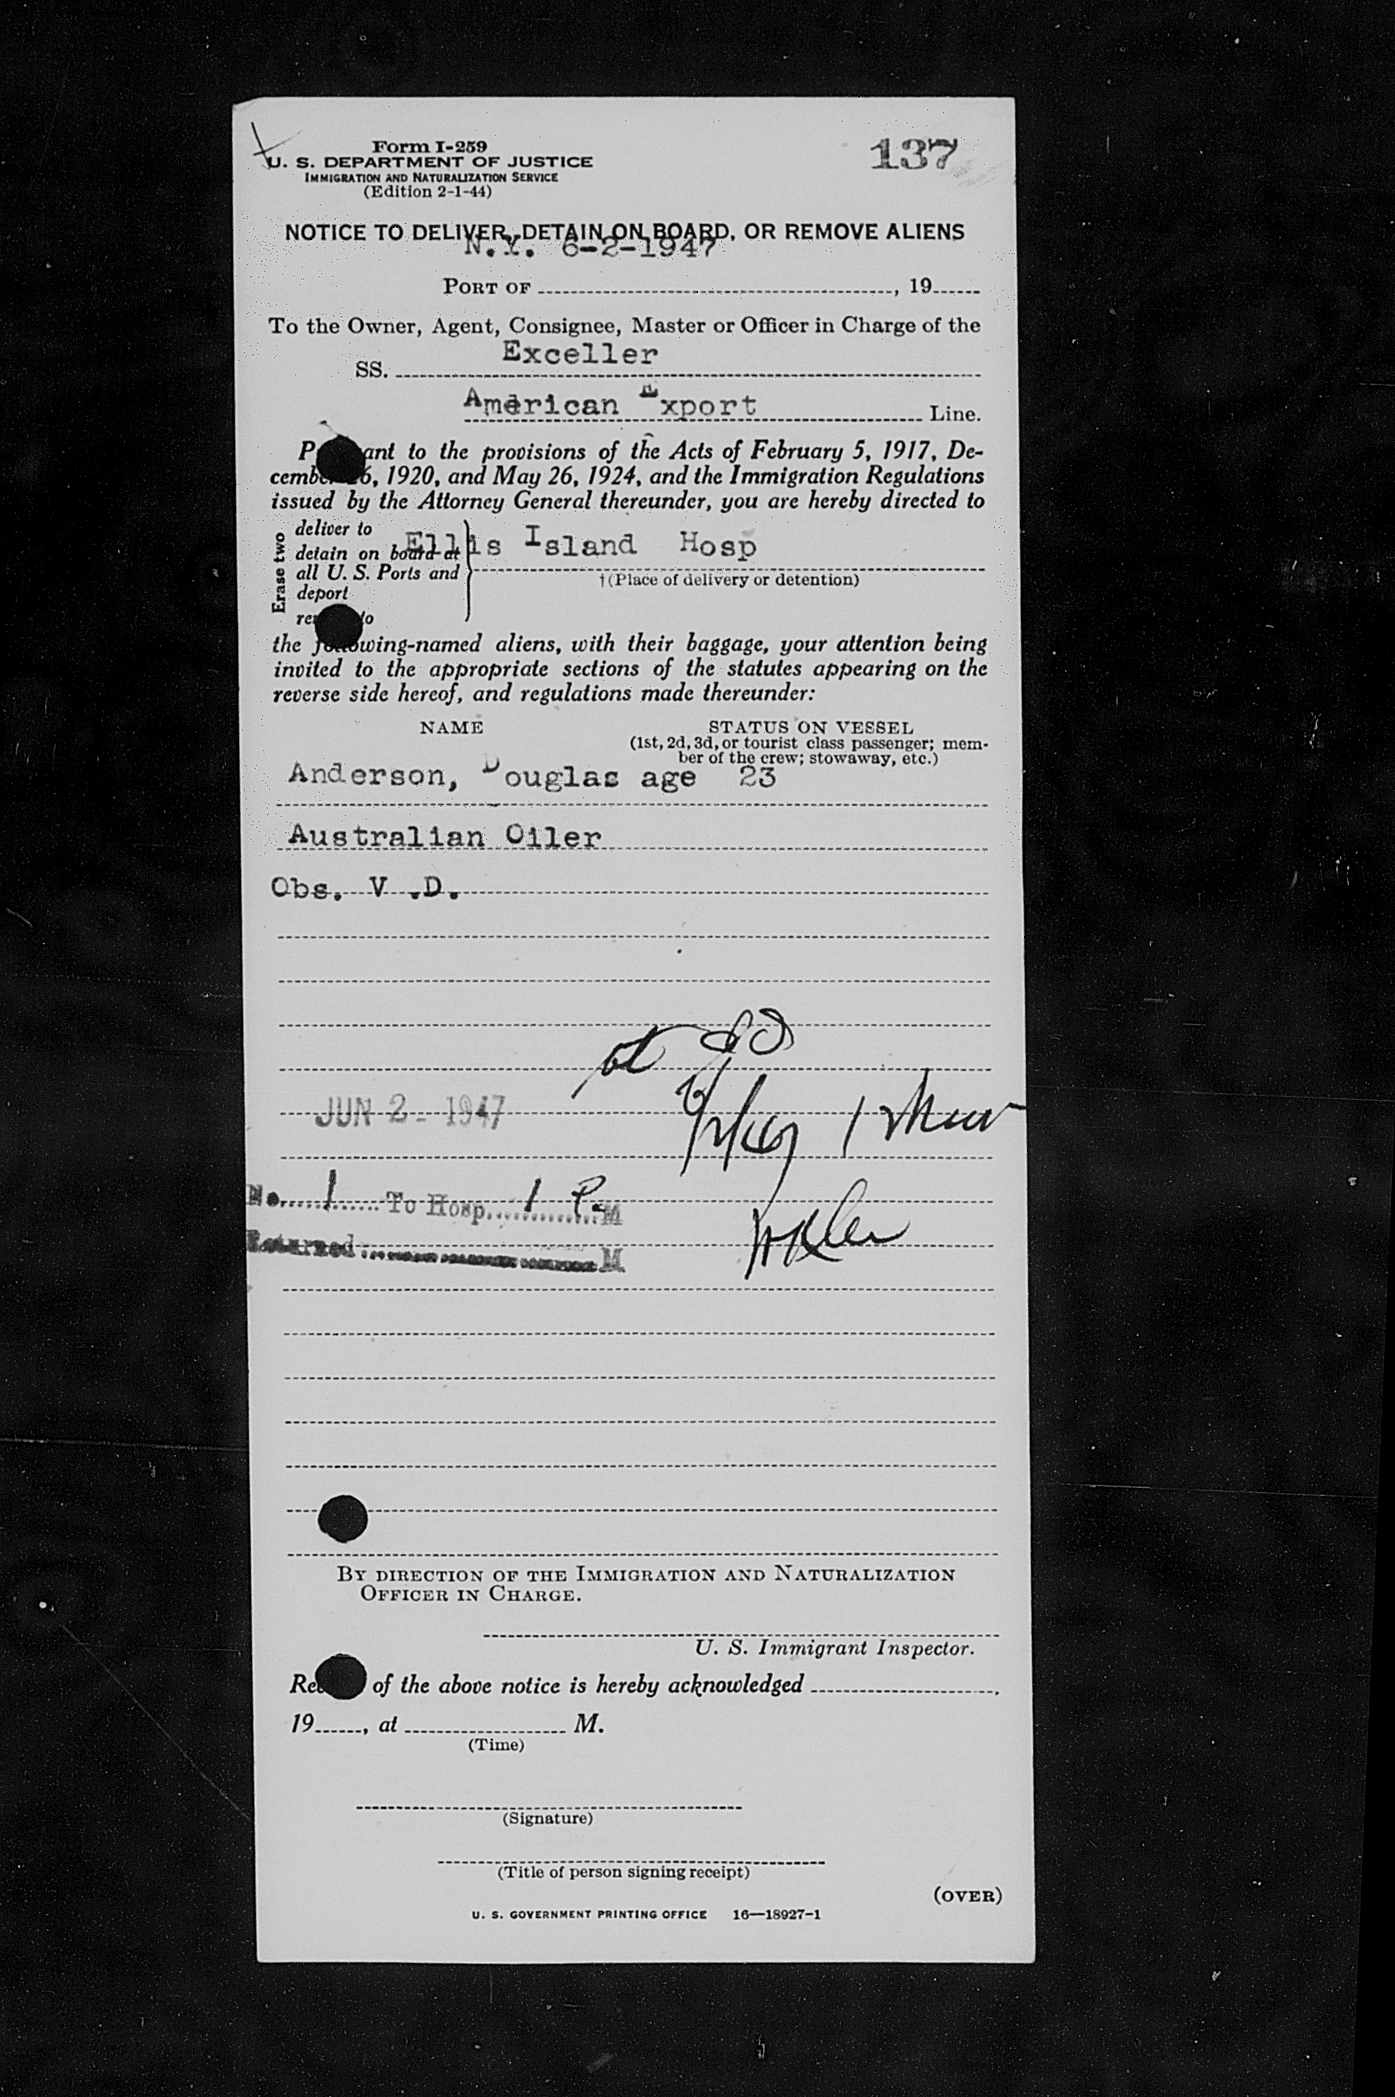 Form I-259
137
U. S. DEPARTMENT OF JUSTICE
IMMIGRATION AND NATURALIZATION SERVICE
(Edition 2-1-44)
NOTICE TO DELIVER, DETAIN ON BOARD, OR REMOVE ALIENS
N.Y. 6-2-1947
PORT OF , 19
To the Owner, Agent, Consignee, Master or Officer in Charge of the
SS. Exceller
American Export Line.
P ant to the provisions of the Acts of February 5, 1917, De-
cember 26, 1920, and May 26, 1924, and the Immigration Regulations
issued by the Attorney General thereunder, you are hereby directed to
Erase two
deliver to
detain on board at
Ellis Island Hosp
all U. S. Ports and
†(Place of delivery or detention)
deport
re to
the following-named aliens, with their baggage, your attention being
invited to the appropriate sections of the statutes appearing on the
reverse side hereof, and regulations made thereunder:
NAME STATUS ON VESSEL
(1st, 2d, 3d, or tourist class passenger; mem-
ber of the crew; stowaway, etc.)
Anderson, Douglas age 23
Australian Oiler
Obs. V .D.
JUN 2 - 1947
6/2/47 1
No. 1 To Hosp. 1 P. M
Returned M
BY DIRECTION OF THE IMMIGRATION AND NATURALIZATION
OFFICER IN CHARGE.
U. S. Immigrant Inspector.
Re of the above notice is hereby acknowledged ,
19 , at M.
(Time)
(Signature)
(Title of person signing receipt)
(OVER)
U. S. GOVERNMENT PRINTING OFFICE 16—18927-1